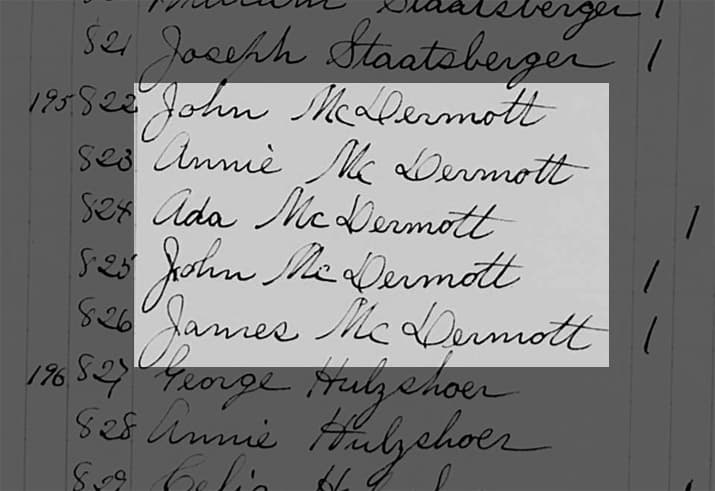 Staatsberger 1
821 Joseph Staatsberger 1
195 822 John McDermott
823 Annie McDermott
824 Ada McDermott 1
825 John McDermott 1
826 James McDermott 1
196 827 George Hulzshoer
828 Annie Hulzshoer
829